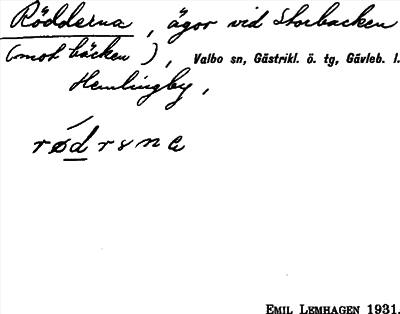 Rödderna, ägor vid Storbacken
(mot bäcken), Valbo sn, Gästrikl. ö. tg, Gävleb. l.
Hemlingby,
rødrsna
EMIL LEMHAGEN 1931.